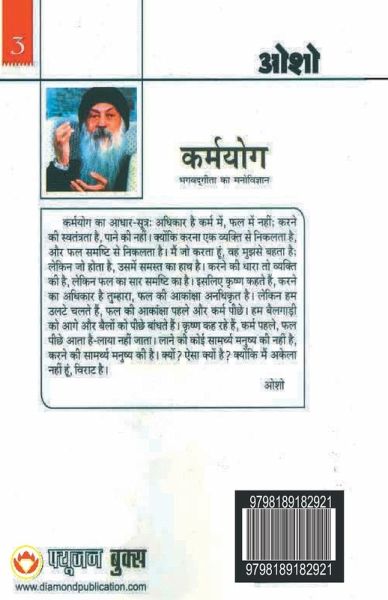 3
ओशो
कर्मयोग
भगवद्गीता का मनोविज्ञान
कर्मयोग का आधार-सूत्र: अधिकार है कर्म में, फल में नहीं; करने
की स्वतंत्रता है, पाने की नहीं। क्योंकि करना एक व्यक्ति से निकलता है,
और फल समष्टि से निकलता है। मैं जो करता हूं, वह मुझसे बहता है;
लेकिन जो होता है, उसमें समस्त का हाथ है। करने की धारा तो व्यक्ति
की है, लेकिन फल का सार समष्टि का है। इसलिए कृष्ण कहते हैं, करने
का अधिकार है तुम्हारा, फल की आकांक्षा अनधिकृत है। लेकिन हम
उलटे चलते हैं, फल की आकांक्षा पहले और कर्म पीछे। हम बैलगाड़ी
को आगे और बैलों को पीछे बांधते हैं। कृष्ण कह रहे हैं, कर्म पहले, फल
पीछे आता है-लाया नहीं जाता। लाने की कोई सामर्थ्य मनुष्य की नहीं है,
करने की सामर्थ्य मनुष्य की है। क्यों? ऐसा क्यों है? क्योंकि मैं अकेला
नहीं हूं, विराट है।
ओशो
9798189182921
9798189182921
फ्यूजन बुक्स
www.diamondpublication.com